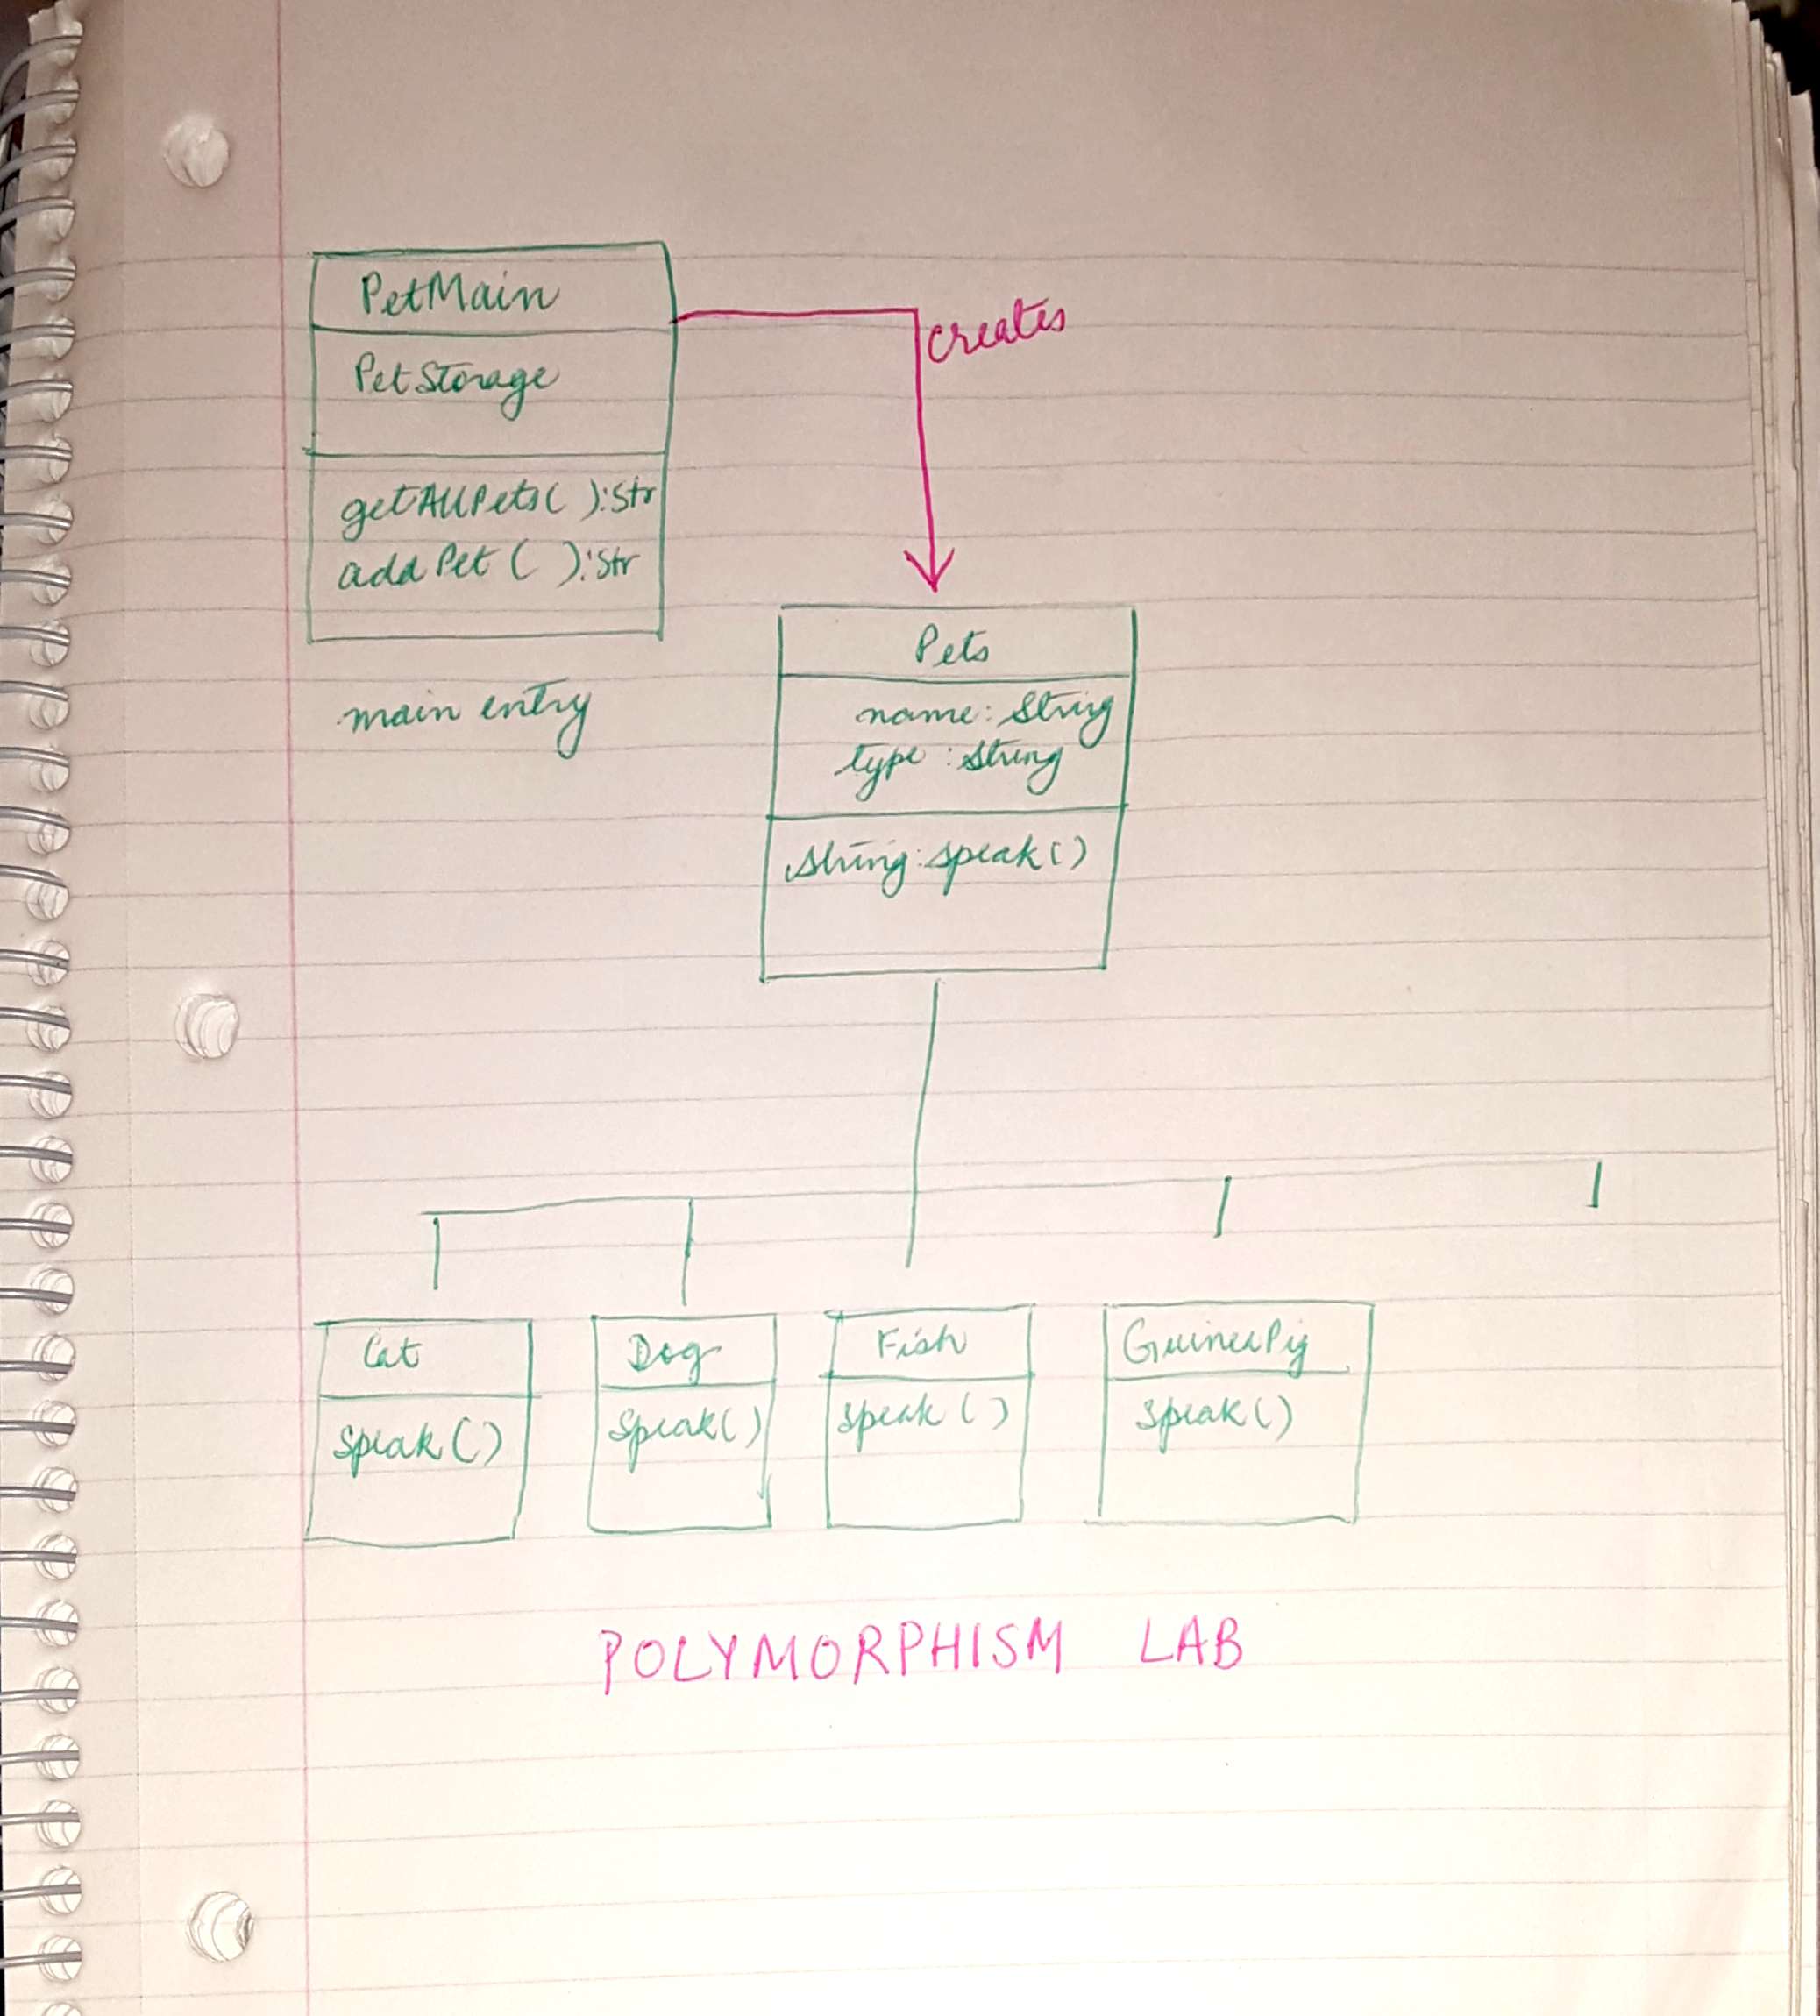 PetMain
PetStorage
getAllPets( ):Str
addPet ( ):Str
main entry
creates
Pets
name: String
type: String
String: speak()
Cat
speak()
Dog
Speak()
Fish
speak()
GuineaPig
speak()
POLYMORPHISM LAB